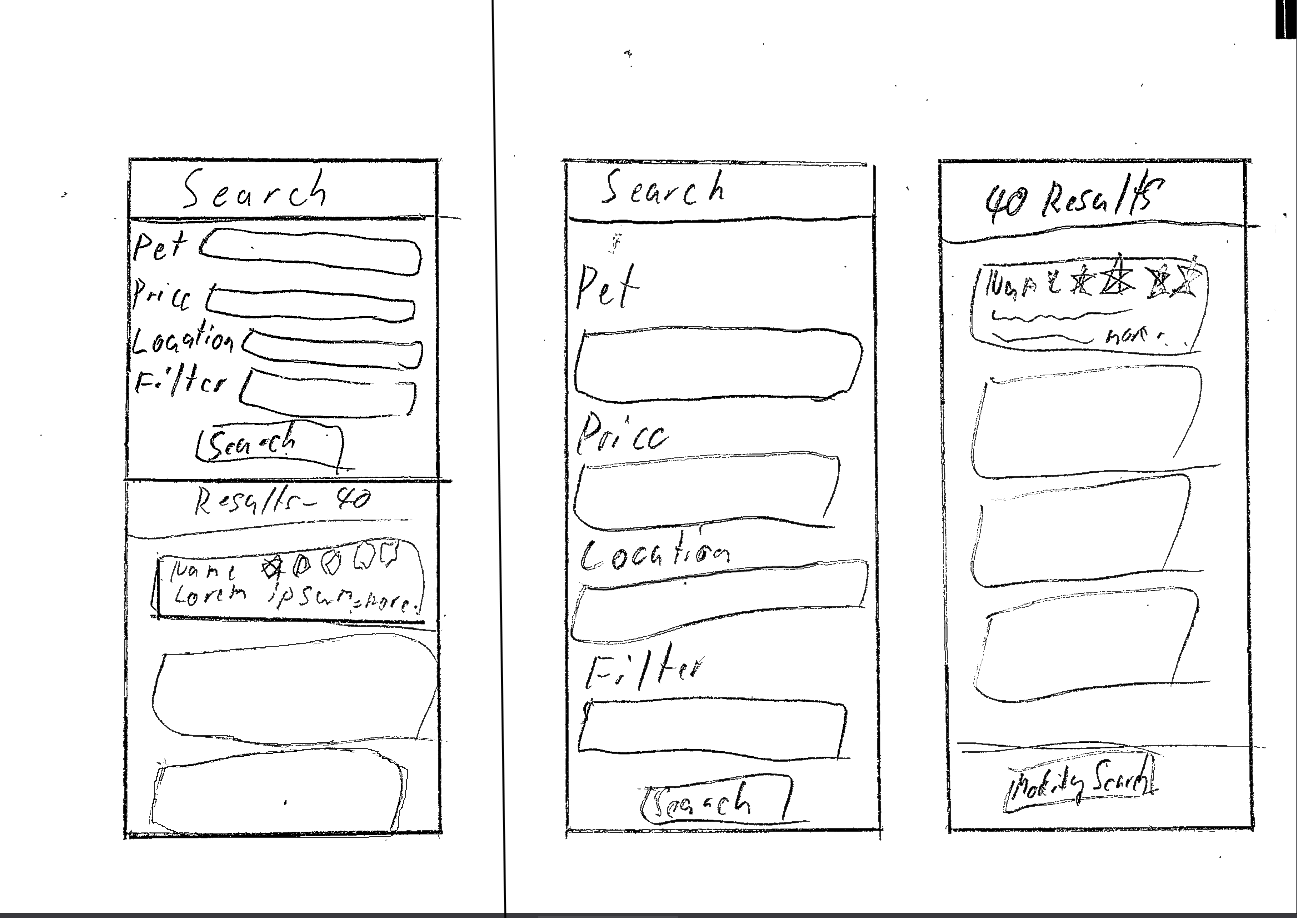 Search
Pet
Price
Location
Filter
Search
Results - 40
Name
Lorem ipsum more.
Search
Pet
Price
Location
Filter
Search
40 Results
Name
more...
Modify Search